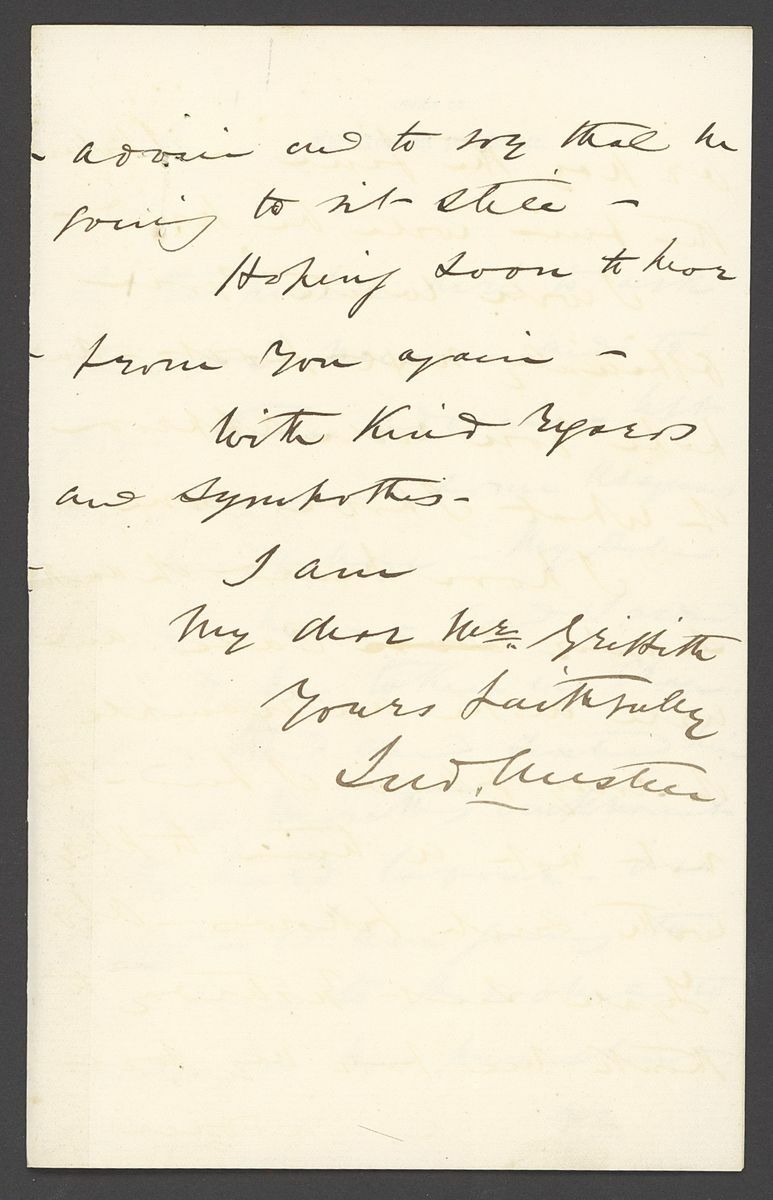 advice and to say that
going to sit still -
Hoping soon to hear
from you again -
With Kind Regards
and Sympathies -
I am
My dear Mr. Griffith
Yours faithfully